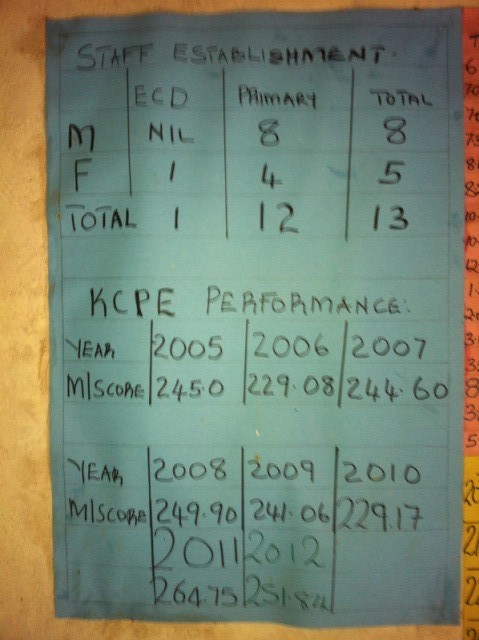 STAFF ESTABLISHMENT.
ECD PRIMARY TOTAL
M NIL 8 8
F 1 4 5
TOTAL 1 12 13
KCPE PERFORMANCE:
YEAR 2005 2006 2007
M/SCORE 245.0 229.08 244.60
YEAR 2008 2009 2010
M/SCORE 249.90 241.06 229.17
2011 2012
264.75 251.84